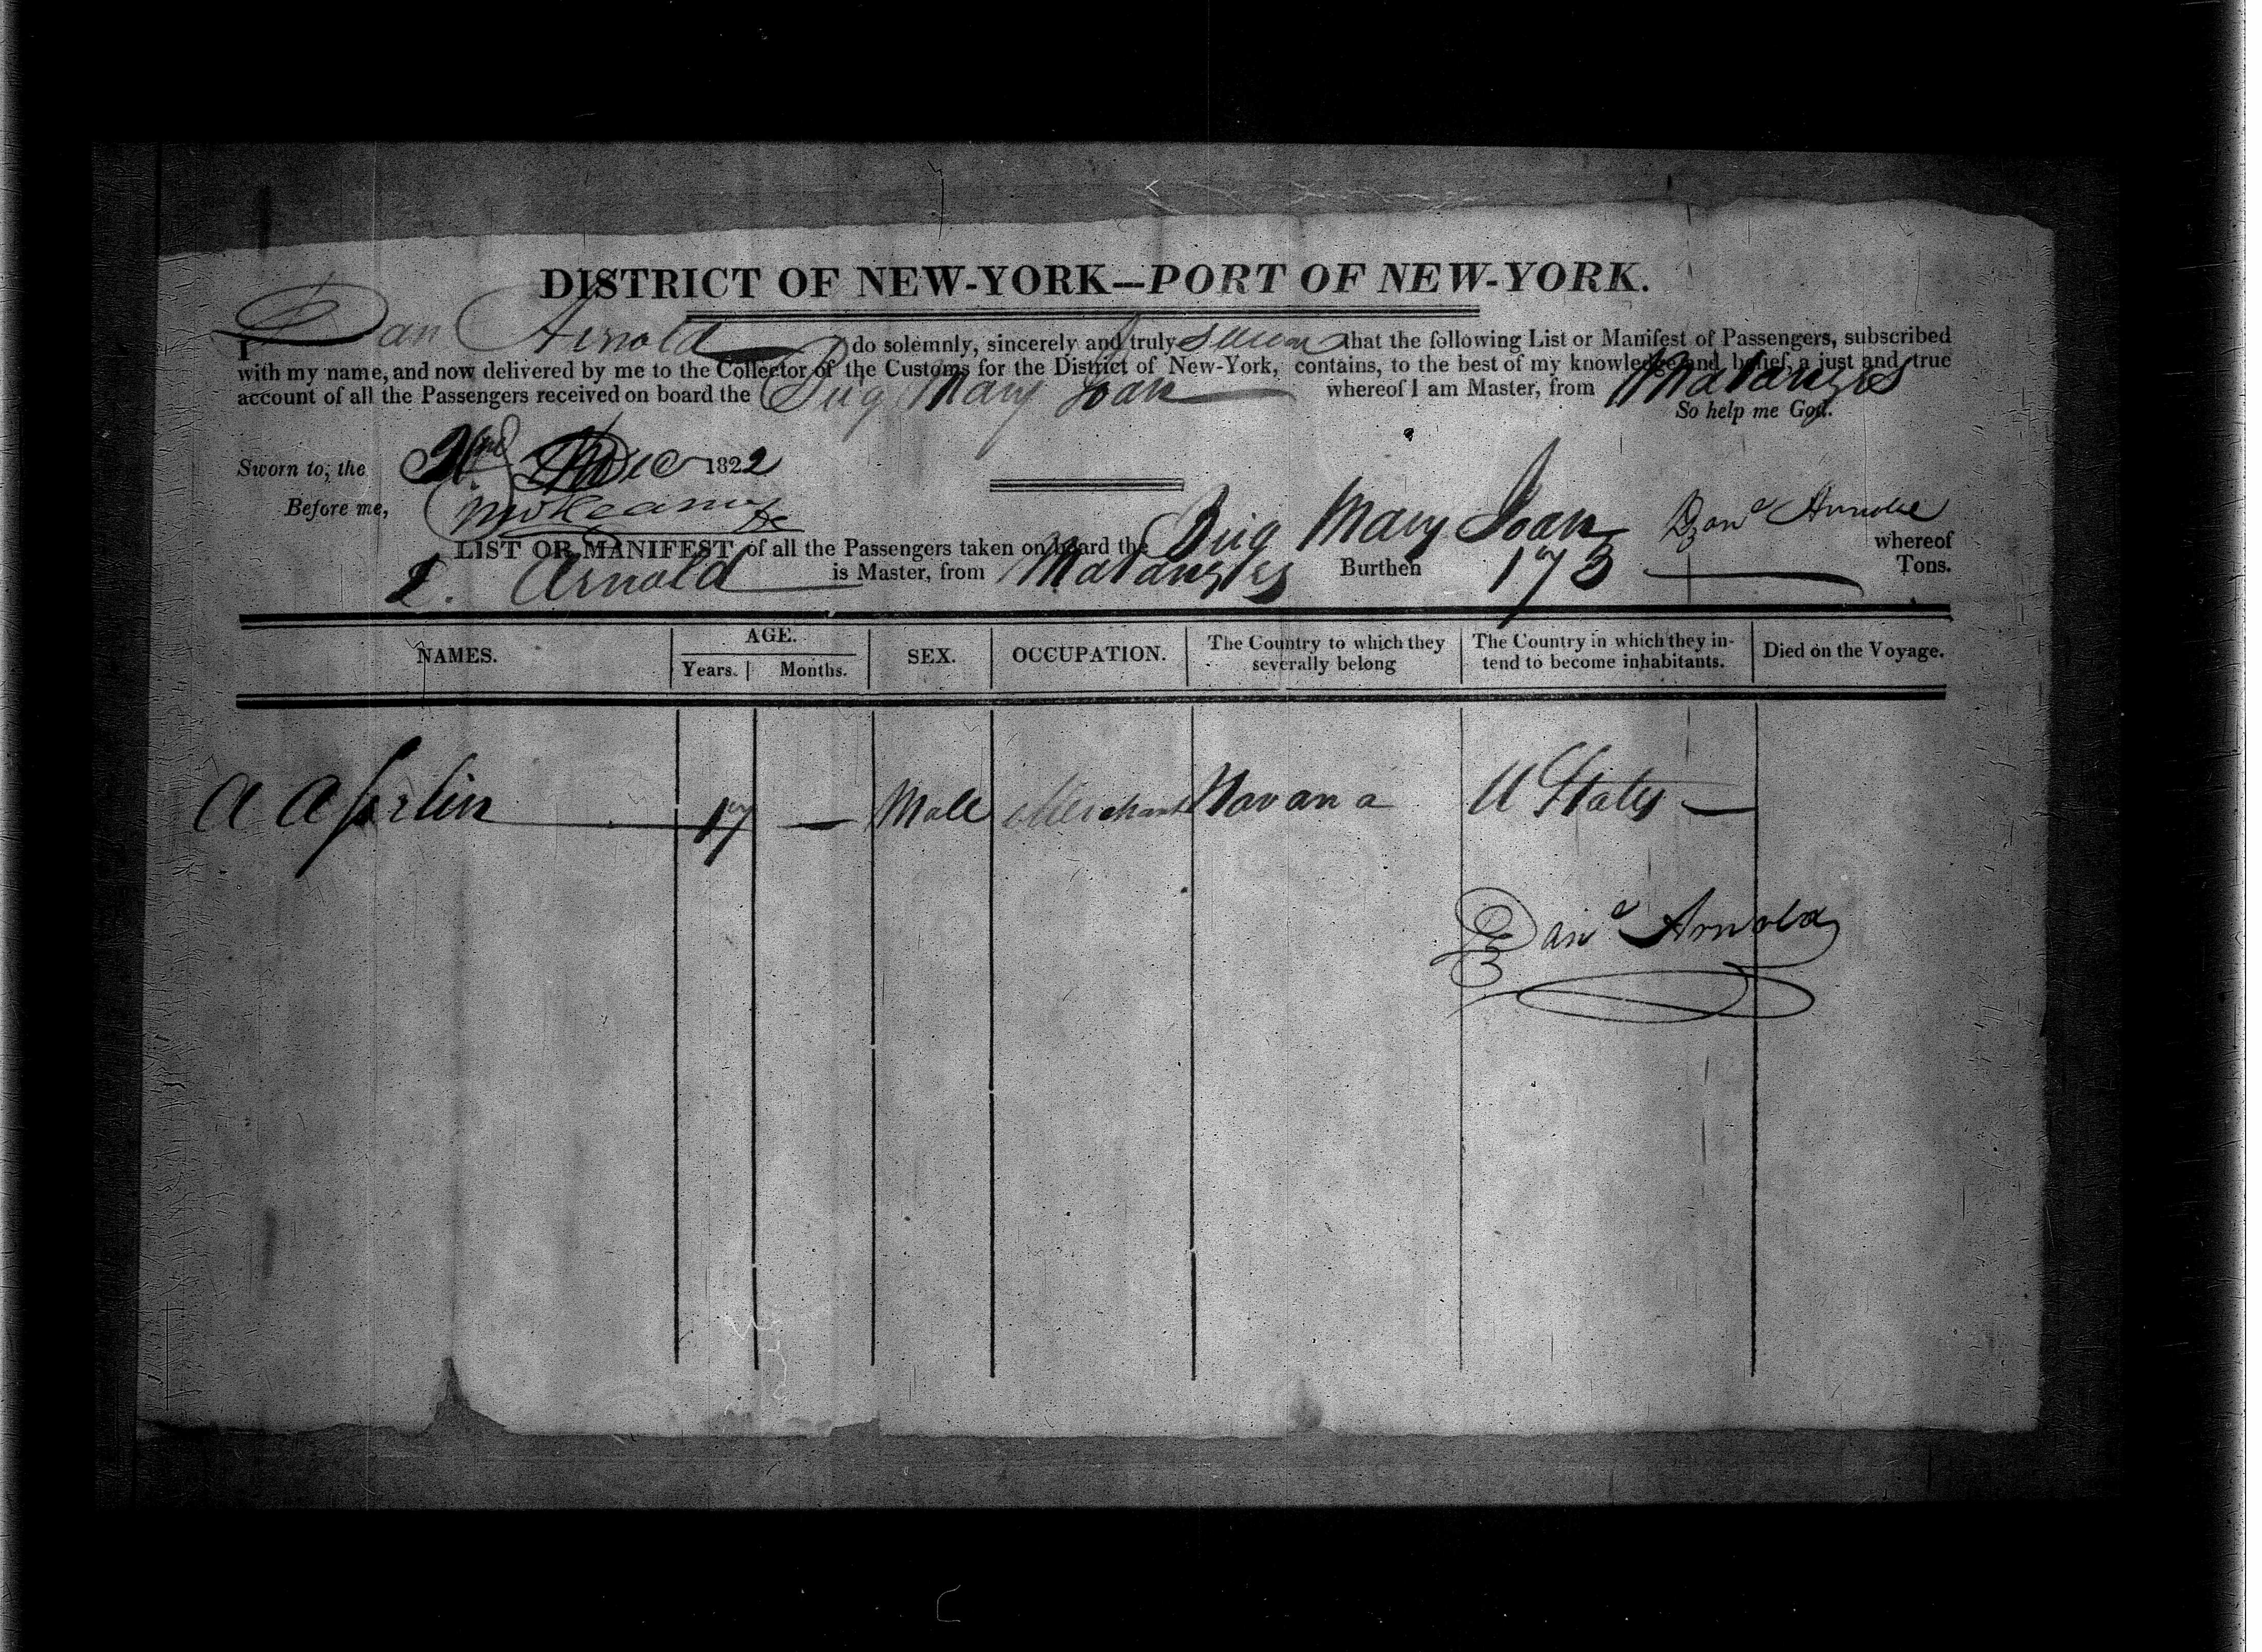 DISTRICT OF NEW-YORK—PORT OF NEW-YORK.
I Dan Arnold do solemnly, sincerely and truly swear that the following List or Manifest of Passengers, subscribed
with my name, and now delivered by me to the Collector of the Customs for the District of New-York, contains, to the best of my knowledge and belief, a just and true
account of all the Passengers received on board the Brig Mary Joan whereof I am Master, from Matanzes
So help me God.
Sworn to, the Dec 1822
Before me,
Danl Arnold
LIST OR MANIFEST of all the Passengers taken on board the Brig Mary Joan whereof
D. Arnold is Master, from Matanzes Burthen 173 Tons.
NAMES. AGE. Years. Months. SEX. OCCUPATION. The Country to which they severally belong The Country in which they intend to become inhabitants. Died on the Voyage.
A 17 — Male Merchant Havana U States —
Danl Arnold